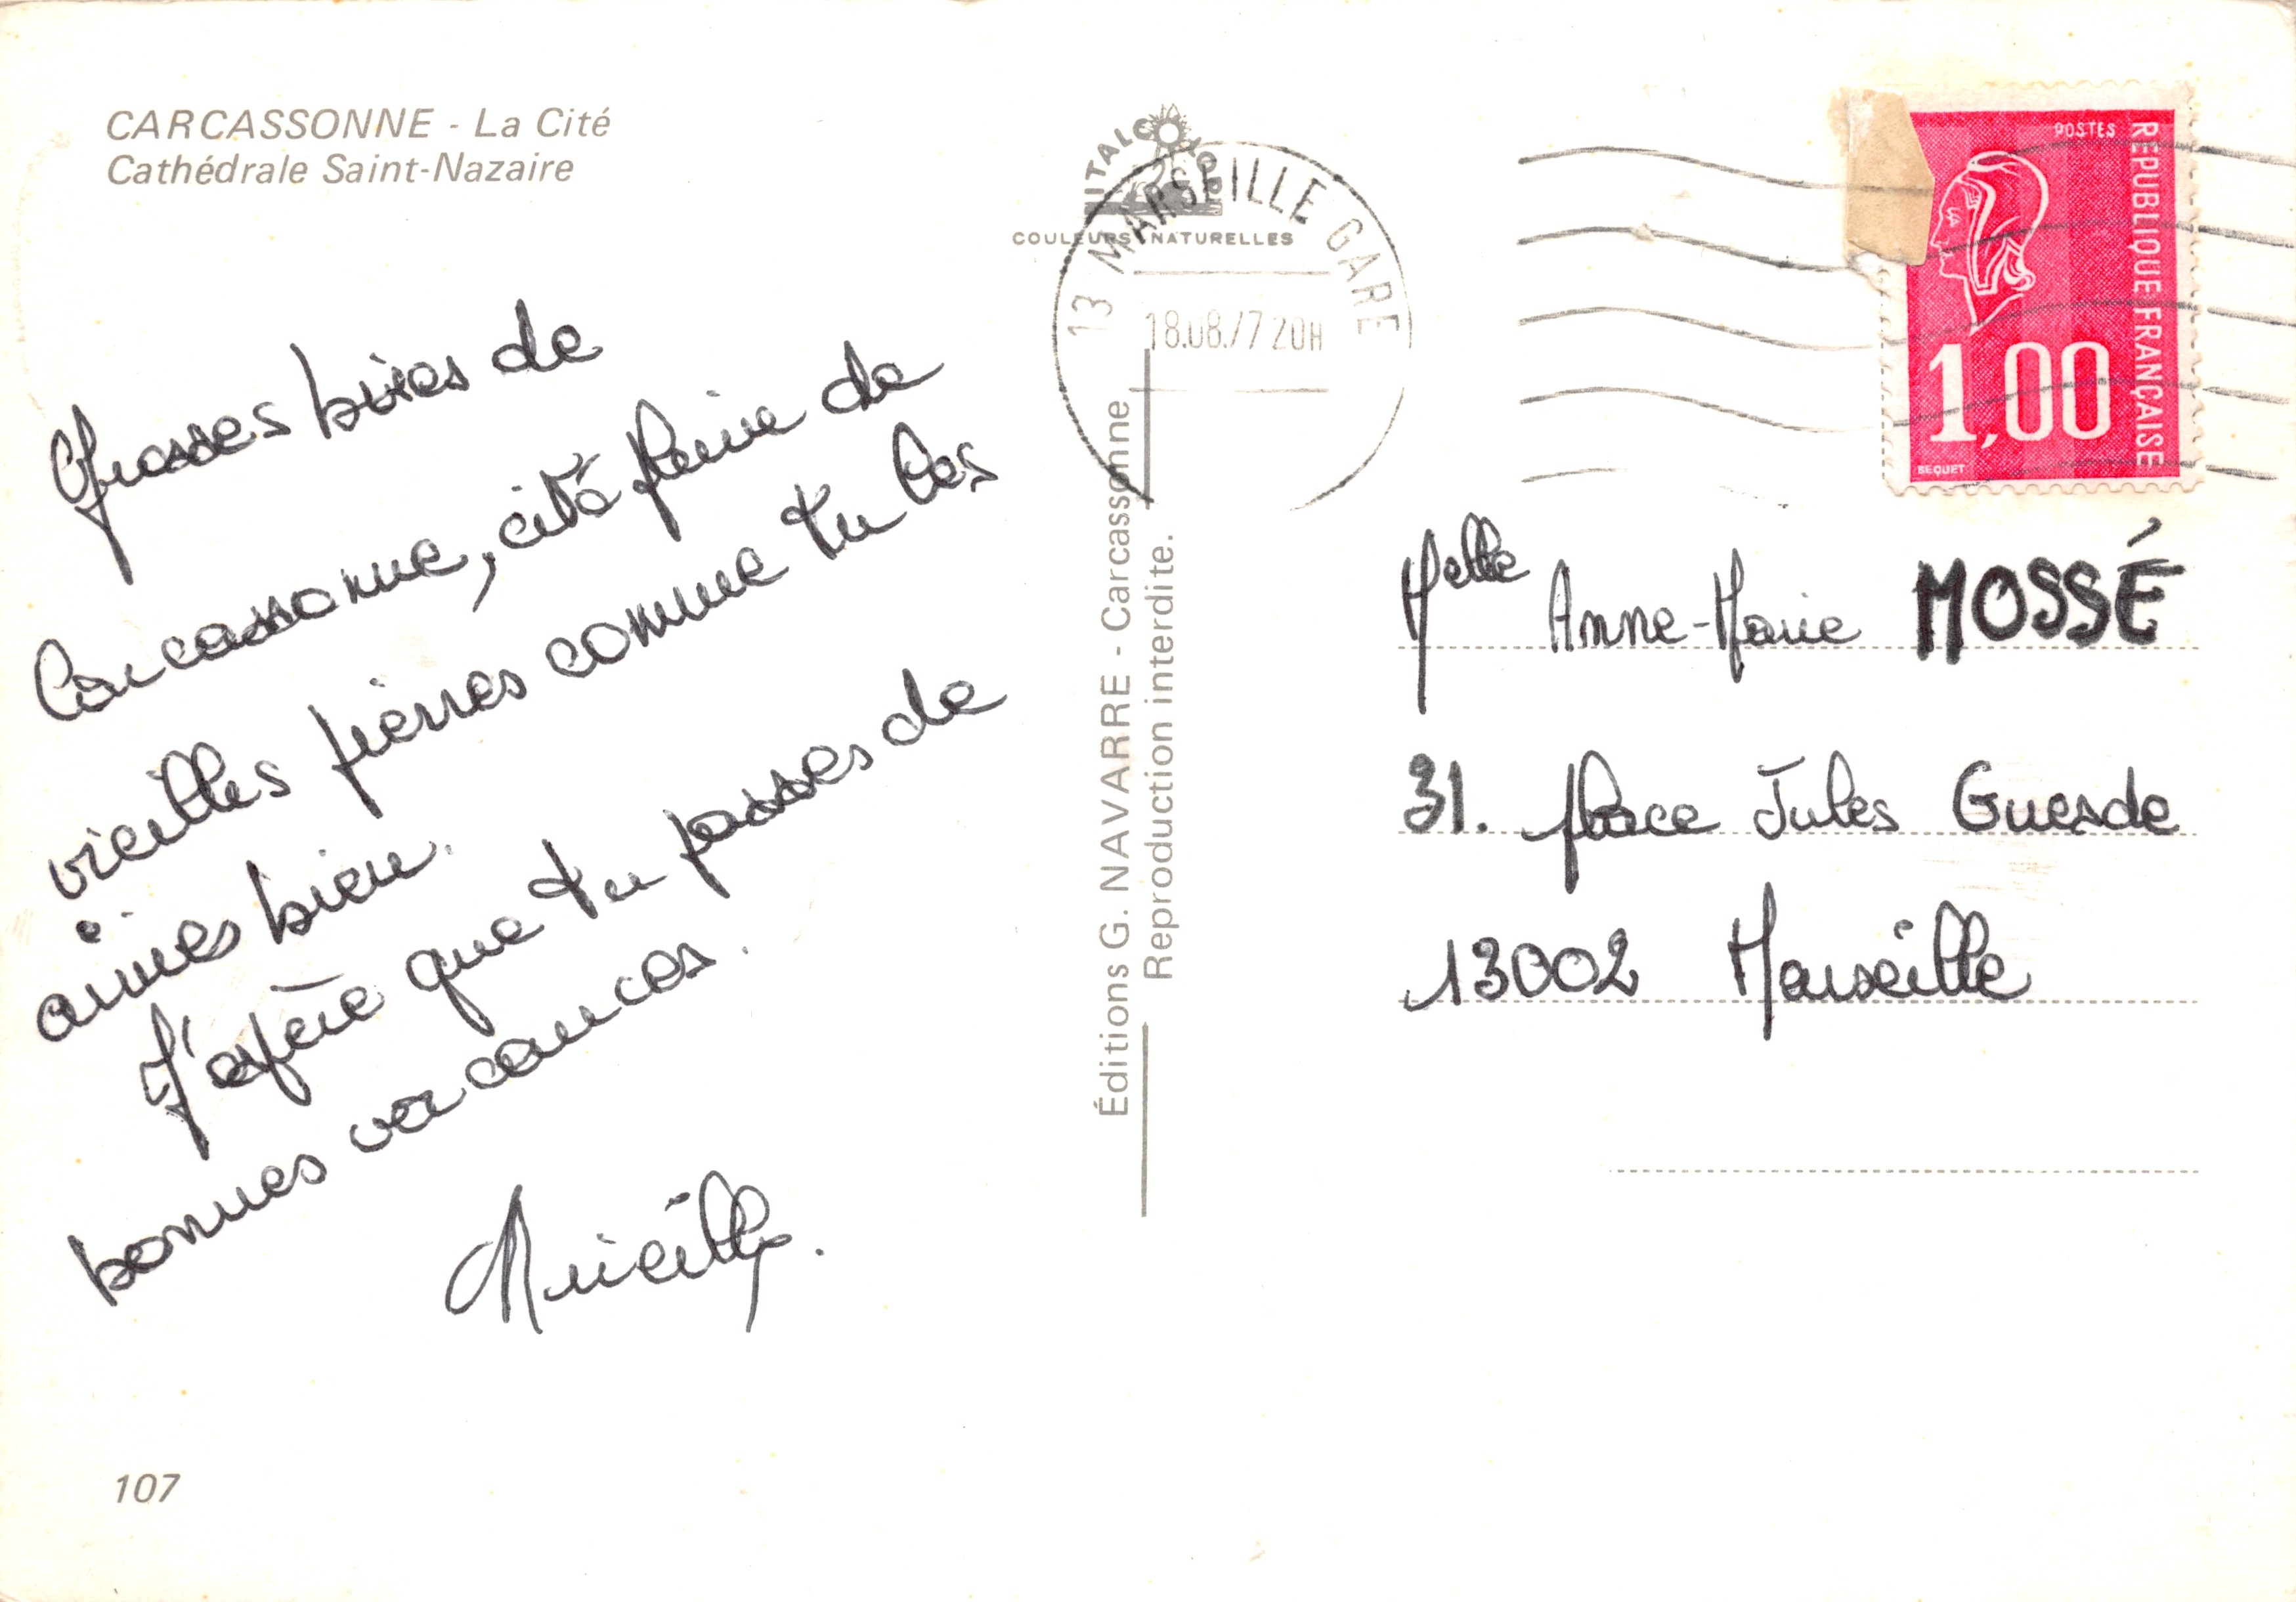 CARCASSONNE - La Cité
Cathédrale Saint-Nazaire
Grosses bises de
Carcassonne, cité pleine de
vieilles pierres comme tu les
aimes bien.
J'espère que tu passes de
bonnes vacances.
Mireille.
107
ITALCOLOR
COULEURS NATURELLES
Éditions G. NAVARRE - Carcassonne
Reproduction interdite.
13 MARSEILLE GARE
18.08.77 20H
POSTES
REPUBLIQUE FRANÇAISE
1,00
BEQUET
Melle Anne-Marie MOSSÉ
31. place Jules Guesde
13002 Marseille